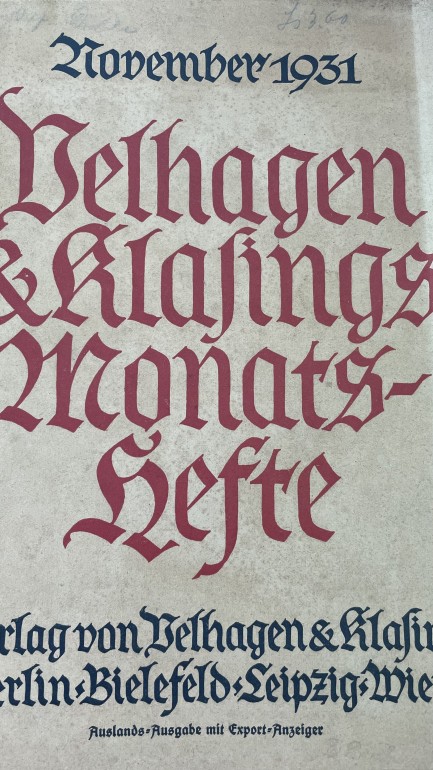 November 1931
Velhagen
& Klasings
Monats-
Hefte
rlag von Velhagen & Klasin
erlin · Bielefeld · Leipzig · Wie
Auslands-Ausgabe mit Export-Anzeiger